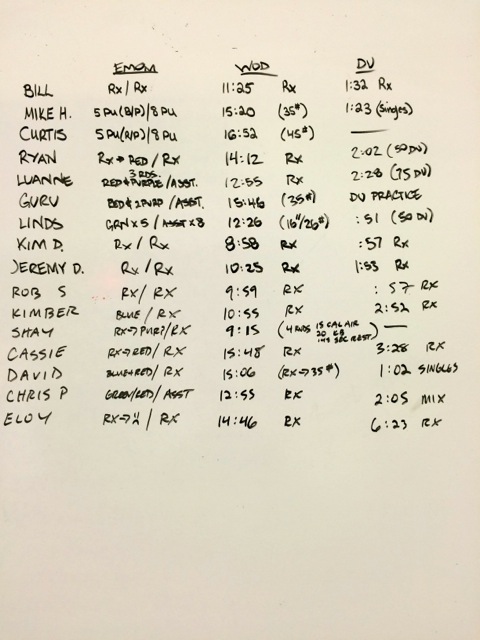 EMOM WOD DU
BILL Rx / Rx 11:25 Rx 1:32 Rx
MIKE H. 5 PU (B/P) / 8 PU 15:20 (35#) 1:23 (Singles)
CURTIS 5 PU (R/P) / 8 PU 16:52 (45#) —
RYAN Rx → RED / Rx 14:12 Rx 2:02 (50 DU)
3 RDS.
LUANNE RED + PURPLE / ASST. 12:55 Rx 2:28 (75 DU)
GURU RED + 2 PURP / ASST. 15:46 (35#) DU PRACTICE
LINDS GRN x 5 / ASST x 8 12:26 (16"/26#) :51 (50 DU)
KIM D. Rx / Rx 8:58 Rx :57 Rx
JEREMY D. Rx / Rx 10:25 Rx 1:53 Rx
ROB S RX / RX 9:59 RX :57 RX
KIMBER BLUE / RX 10:55 RX 2:52 RX
SHAY RX → PURP / RX 9:15 (4 RNDS 15 CAL AIR 20 KB REST) —
CASSIE RX → RED / RX 15:48 RX 3:28 RX
DAVID BLUE + RED / RX 15:06 (RX → 35#) 1:02 SINGLES
CHRIS P GREEN/RED / ASST 12:55 RX 2:05 MIX
ELOY RX → / RX 14:46 RX 6:23 RX